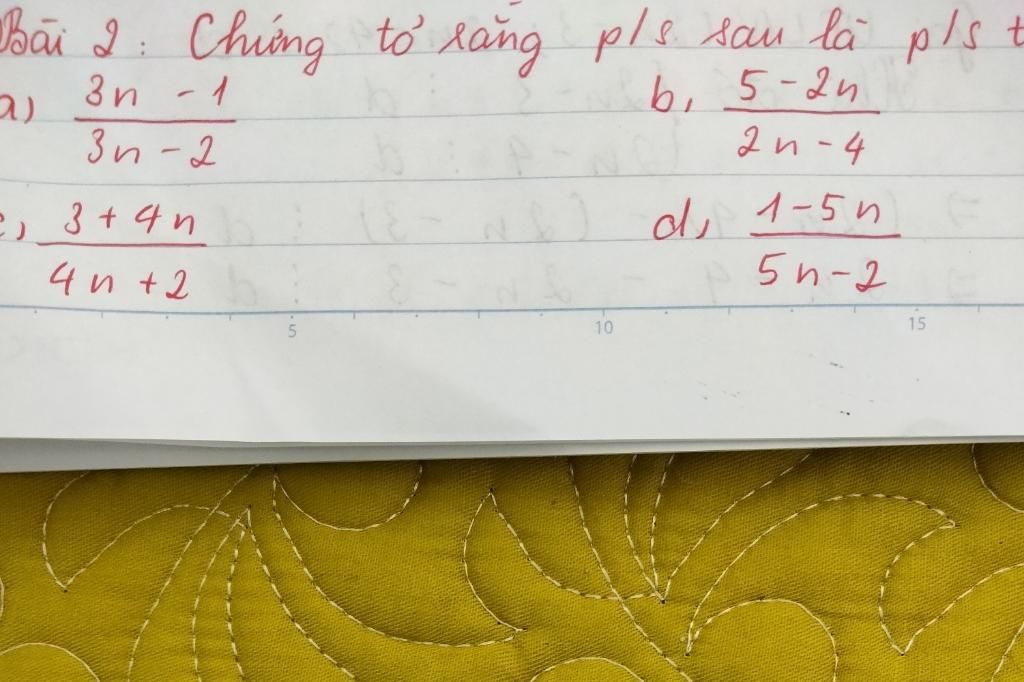 Bài 2: Chứng tỏ rằng p/s sau là p/s t
a) 3n - 1 / 3n - 2 b, 5 - 2n / 2n - 4
c, 3 + 4n / 4n + 2 d, 1 - 5n / 5n - 2
5 10 15